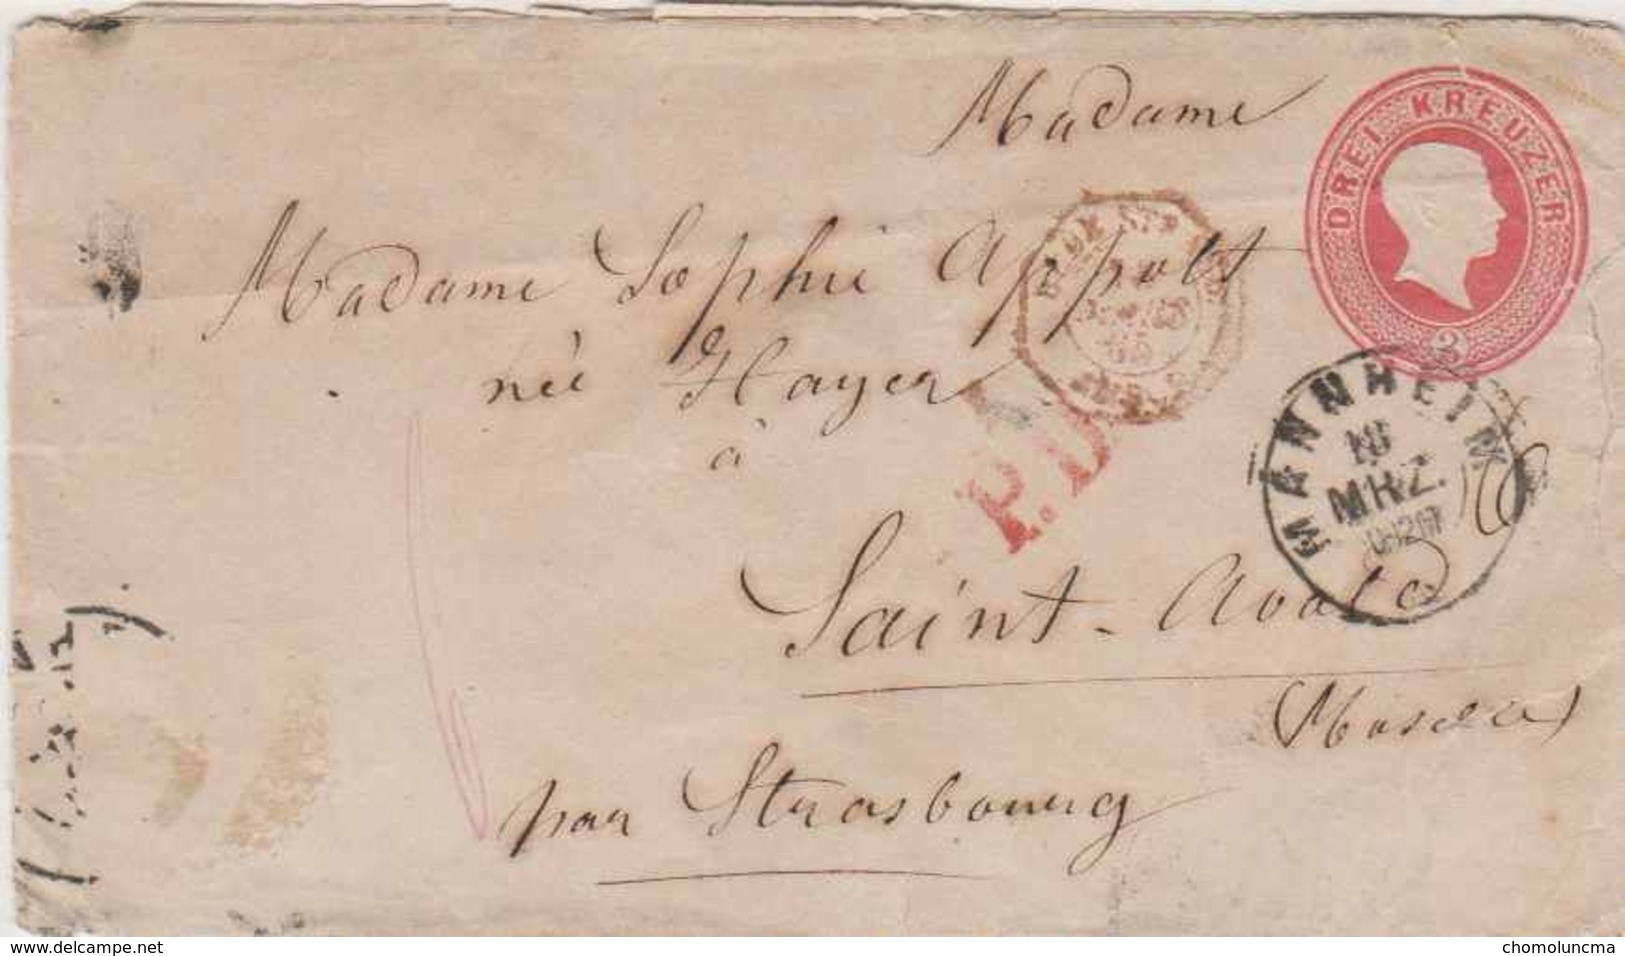 Madame
DREI KREUZER
3
Madame Sophie Appolt
née Hayer
à
P.D.
MANNHEIM
MRZ.
Saint-Avold
(Moselle)
par Strasbourg
www.delcampe.net
chomoluncma